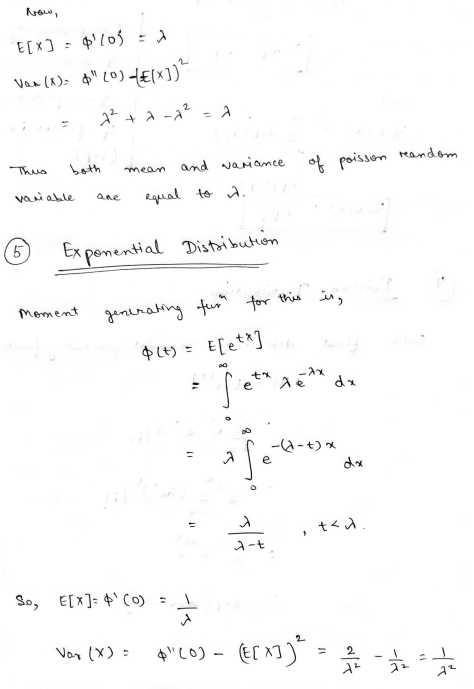 Now,
E[X] = φ'(0) = λ
Var(X) = φ''(0) - (E[X])²
= λ² + λ - λ² = λ.
Thus both mean and variance of poisson random
variable are equal to λ.
⑤ Exponential Distribution
Moment generating funⁿ for this is,
φ(t) = E[e^{tx}]
= ∫₀^∞ e^{tx} λ e^{-λx} dx
= λ ∫₀^∞ e^{-(λ-t)x} dx
= λ/(λ-t) , t<λ.
So, E[X] = φ'(0) = 1/λ
Var(X) = φ''(0) - (E[X])² = 2/λ² - 1/λ² = 1/λ²